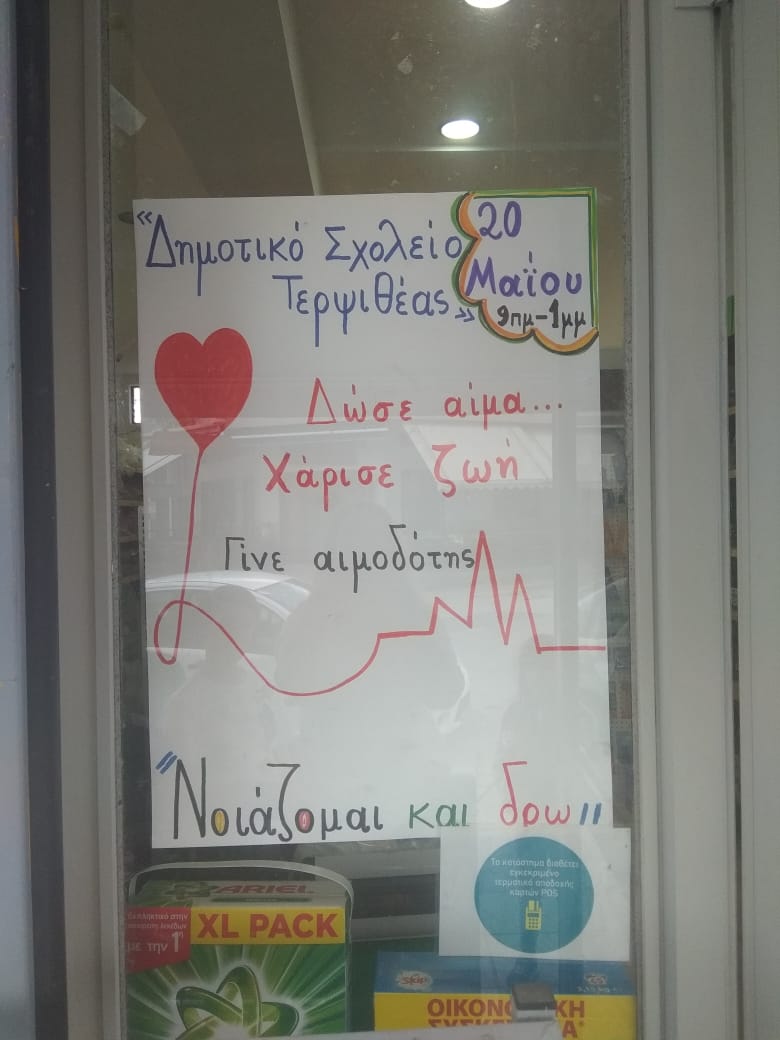 «Δημοτικό Σχολείο
Τερψιθέας»
20
Μαΐου
9πμ-1μμ
Δώσε αίμα...
Χάρισε ζωή
Γίνε αιμοδότης
"Νοιάζομαι και δρω"
Το κατάστημα διαθέτει
εγκεκριμένο
τερματικό αποδοχής
καρτών POS
ARIEL
XL PACK
με την 1η
Skip
ΟΙΚΟΝ ΚΗ